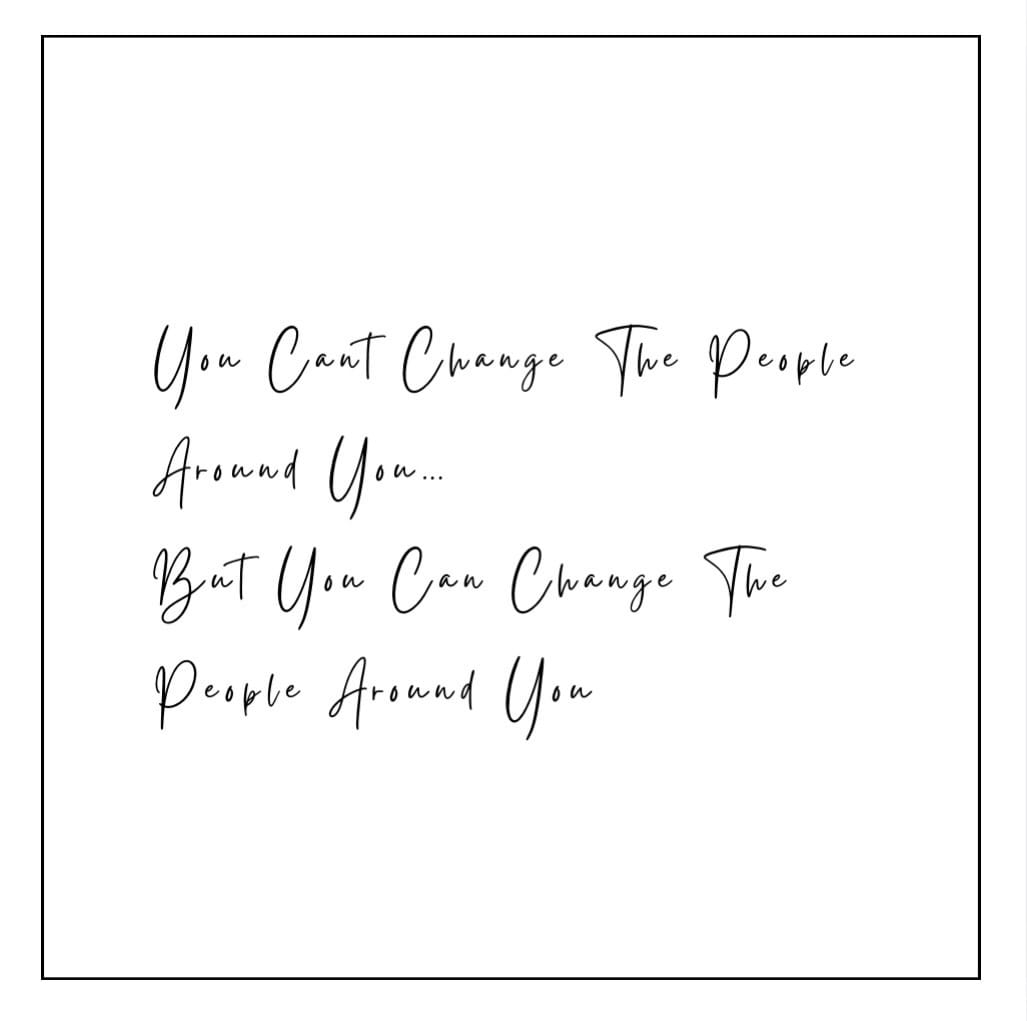 You Cant Change The People
Around You...
But You Can Change The
People Around You